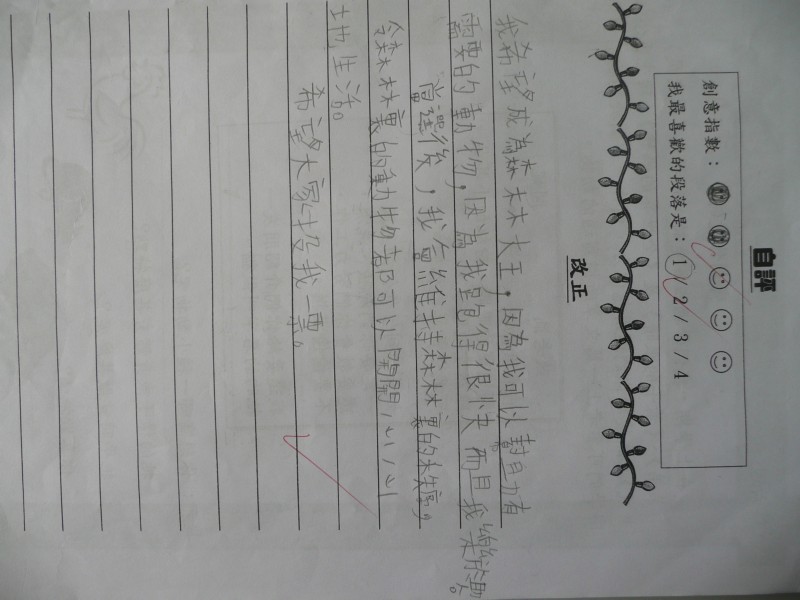 自評
創意指數：
我最喜歡的段落是：1/2/3/4
改正
我希望成為森林大王，因為我可以幫助有
需要的動物，因為我跑得很快而且我樂於助。
當選後，我會維持森林裏的秩序，
令森林裏的動物都可以開開心心
地生活。
希望大家投我一票。